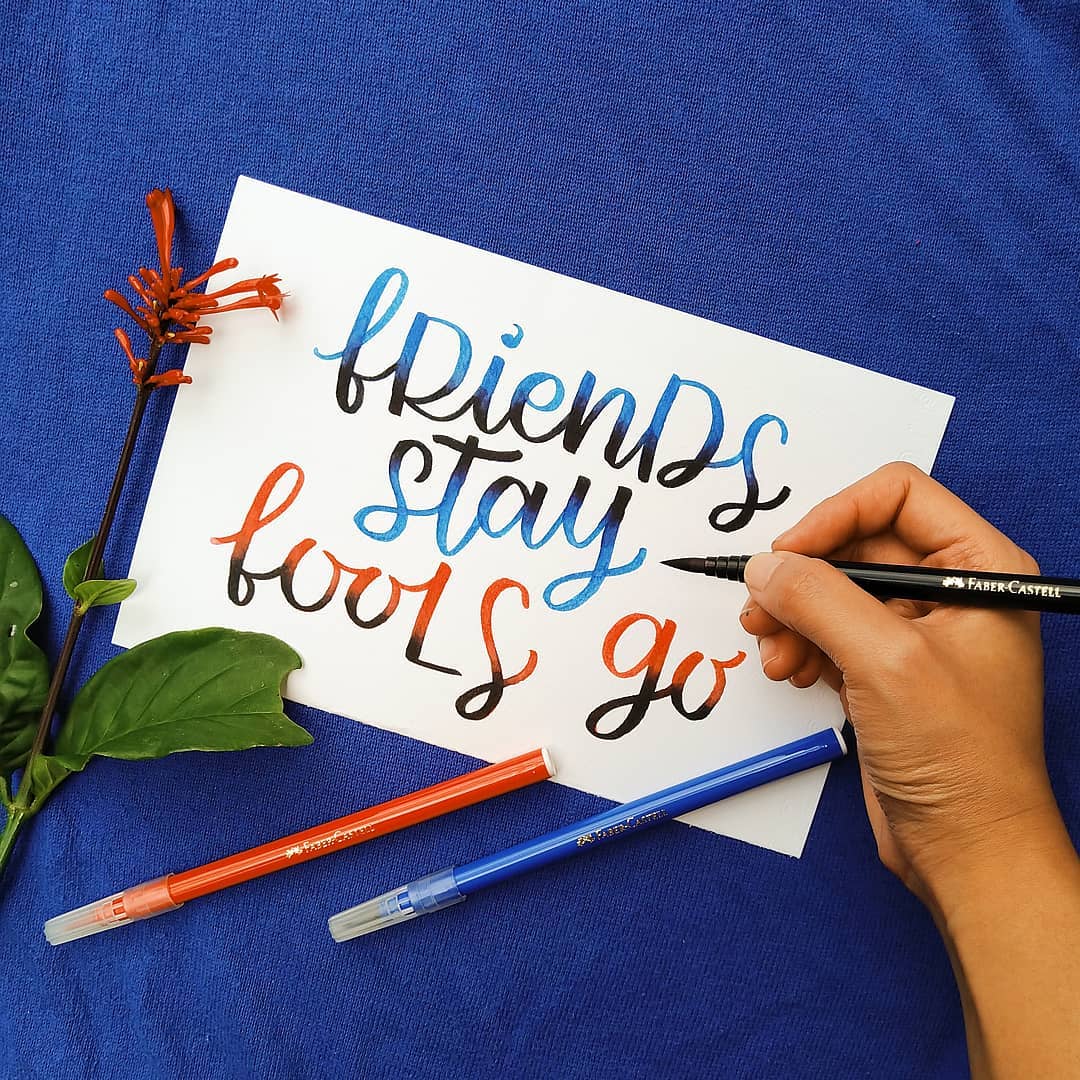 fRienDs
stay
fooLs go
FABER-CASTELL
FABER-CASTELL
FABER-CASTELL